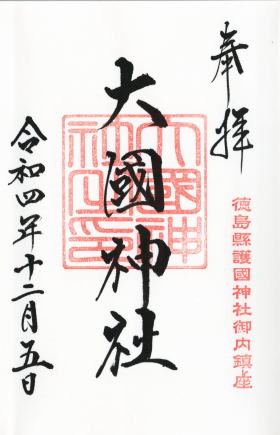 奉拝
徳島縣護國神社御内鎮座
大國神社
大國神社之印
令和四年十二月五日